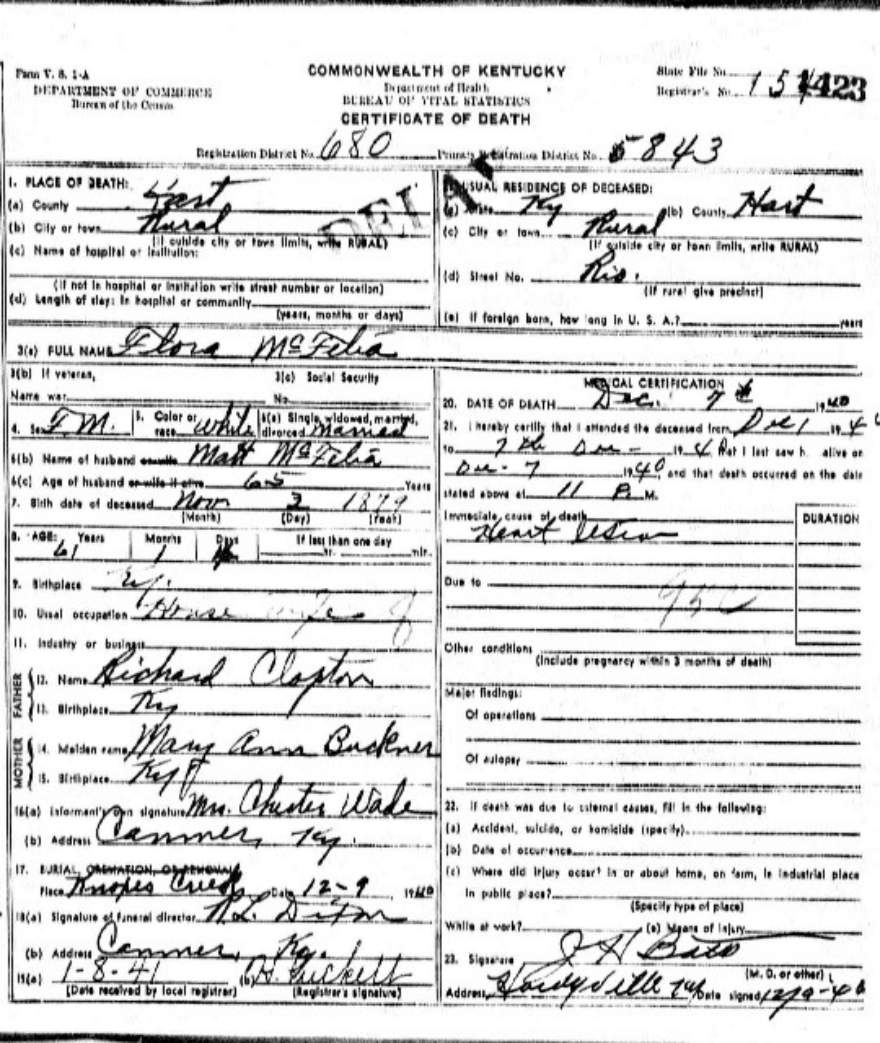 Form V. S. 1-A
DEPARTMENT OF COMMERCE
Bureau of the Census
COMMONWEALTH OF KENTUCKY
Department of Health
BUREAU OF VITAL STATISTICS
CERTIFICATE OF DEATH
State File No.
Registrar's No. 423
Registration District No. 680 Primary Registration District No. 5843
1. PLACE OF DEATH:
(a) County Hart
(b) City or town Rural
(If outside city or town limits, write RURAL)
(c) Name of hospital or institution:
(If not in hospital or institution write street number or location)
(d) Length of stay: In hospital or community
(years, months or days)
2. USUAL RESIDENCE OF DECEASED:
(a) State Ky (b) County Hart
(c) City or town Rural
(If outside city or town limits, write RURAL)
(d) Street No. Rio.
(If rural give precinct)
(e) If foreign born, how long in U. S. A.? years
3(a) FULL NAME Flora McFelia
3(b) If veteran,
Name war
3(c) Social Security
No.
4. Sex F.M. 5. Color or race White 6(a) Single, widowed, married, divorced Married
6(b) Name of husband or wife Matt McFelia
6(c) Age of husband or wife if alive 65 Years
7. Birth date of deceased Nov 3 1879
(Month) (Day) (Year)
8. AGE: Years Months Days If less than one day
61 1 hr. min.
9. Birthplace Ky.
10. Usual occupation House wife
11. Industry or business
FATHER
12. Name Richard Clopton
13. Birthplace Ky
MOTHER
14. Maiden name Mary Ann Buckner
15. Birthplace Ky
16(a) Informant's own signature Mrs. Chester Wade
(b) Address Canmer, Ky.
17. BURIAL, CREMATION, OR REMOVAL
Place Creek Date 12-9 1940
18(a) Signature of funeral director
(b) Address Canmer, Ky.
(a) 1-8-41 (b) H. Puckett
(Date received by local registrar) (Registrar's signature)
MEDICAL CERTIFICATION
20. DATE OF DEATH Dec. 7 1940
21. I hereby certify that I attended the deceased from Dec 1 194
to 7th Dec- 1940 that I last saw h alive on
Dec- 7 1940, and that death occurred on the date
stated above at 11 P. M.
Immediate cause of death DURATION
Heart
Due to
Other conditions
(Include pregnancy within 3 months of death)
Major findings:
Of operations
Of autopsy
22. If death was due to external causes, fill in the following:
(a) Accident, suicide, or homicide (specify)
(b) Date of occurrence
(c) Where did injury occur? in or about home, on farm, in industrial place
in public place?
(Specify type of place)
While at work? (e) Means of injury
23. Signature J H
(M. D. or other)
Address Hardyville Ky Date signed